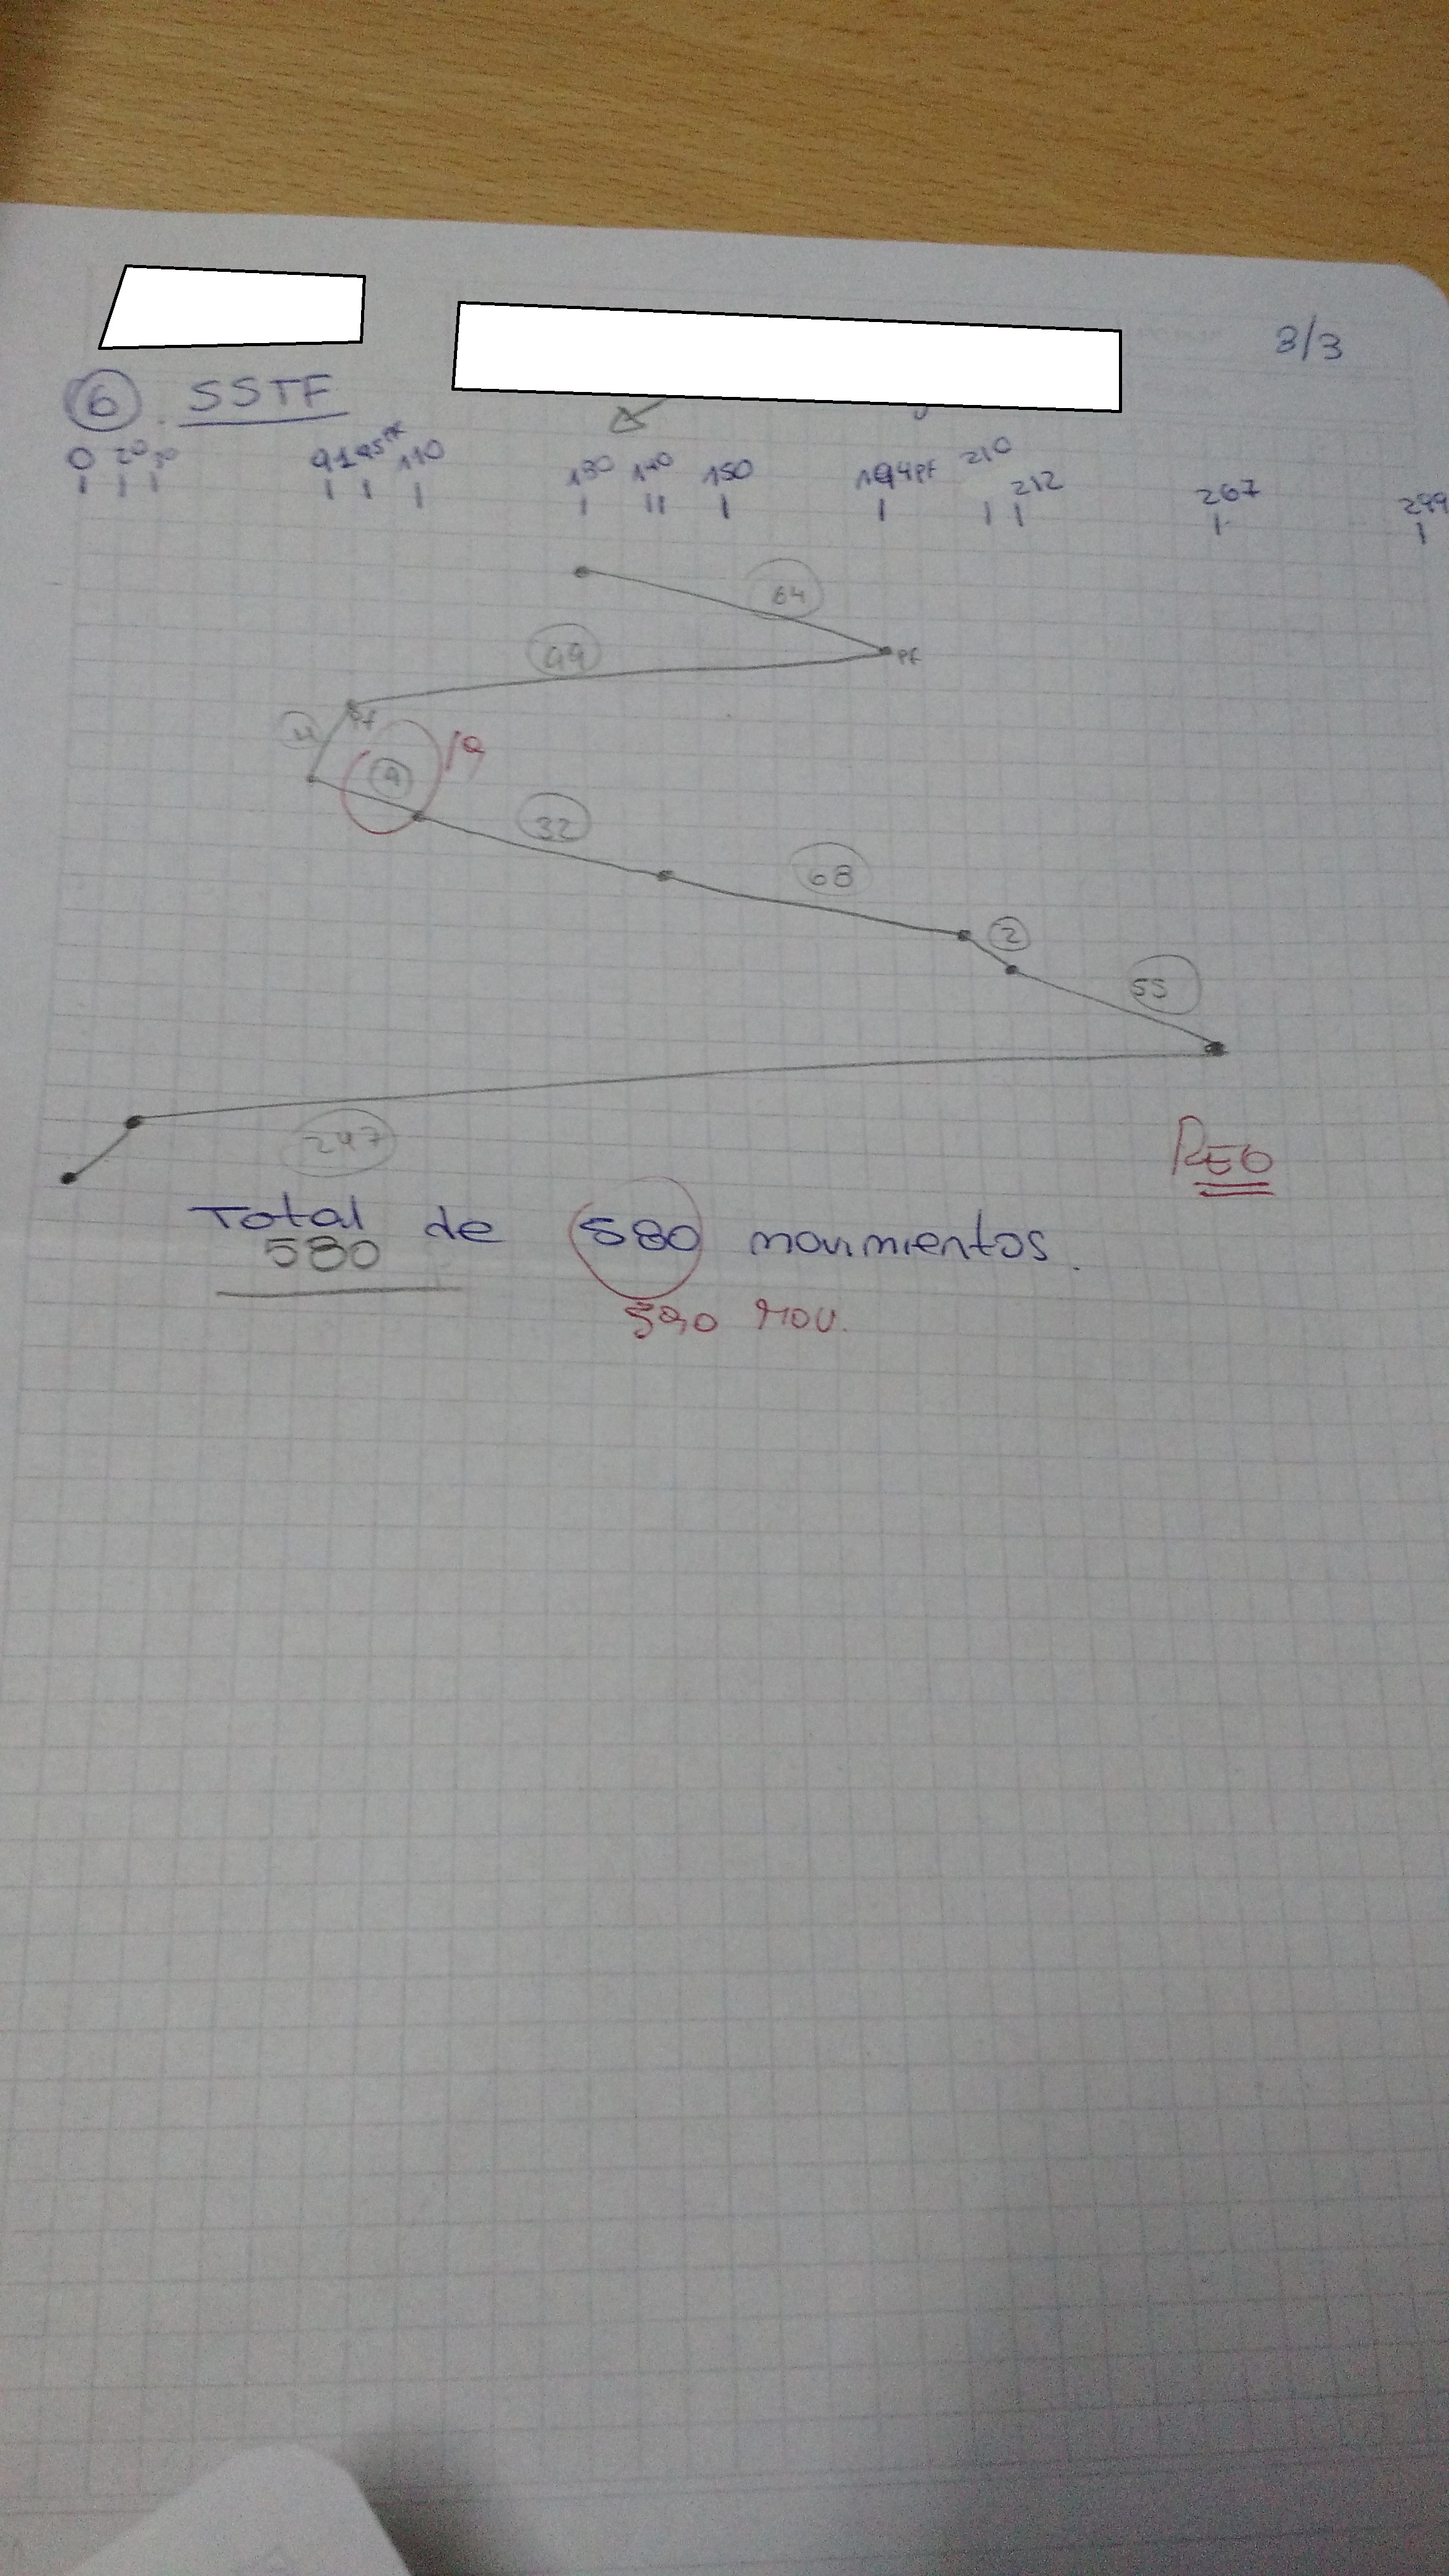 3/3
6 . SSTF
0 20 30 91 95PF 110 130 140 150 194PF 210 212 267 299
64
PF
99
PF
4
9 19
32
68
2
55
247
REG
Total de 580 movimientos.
580
590 MOV.